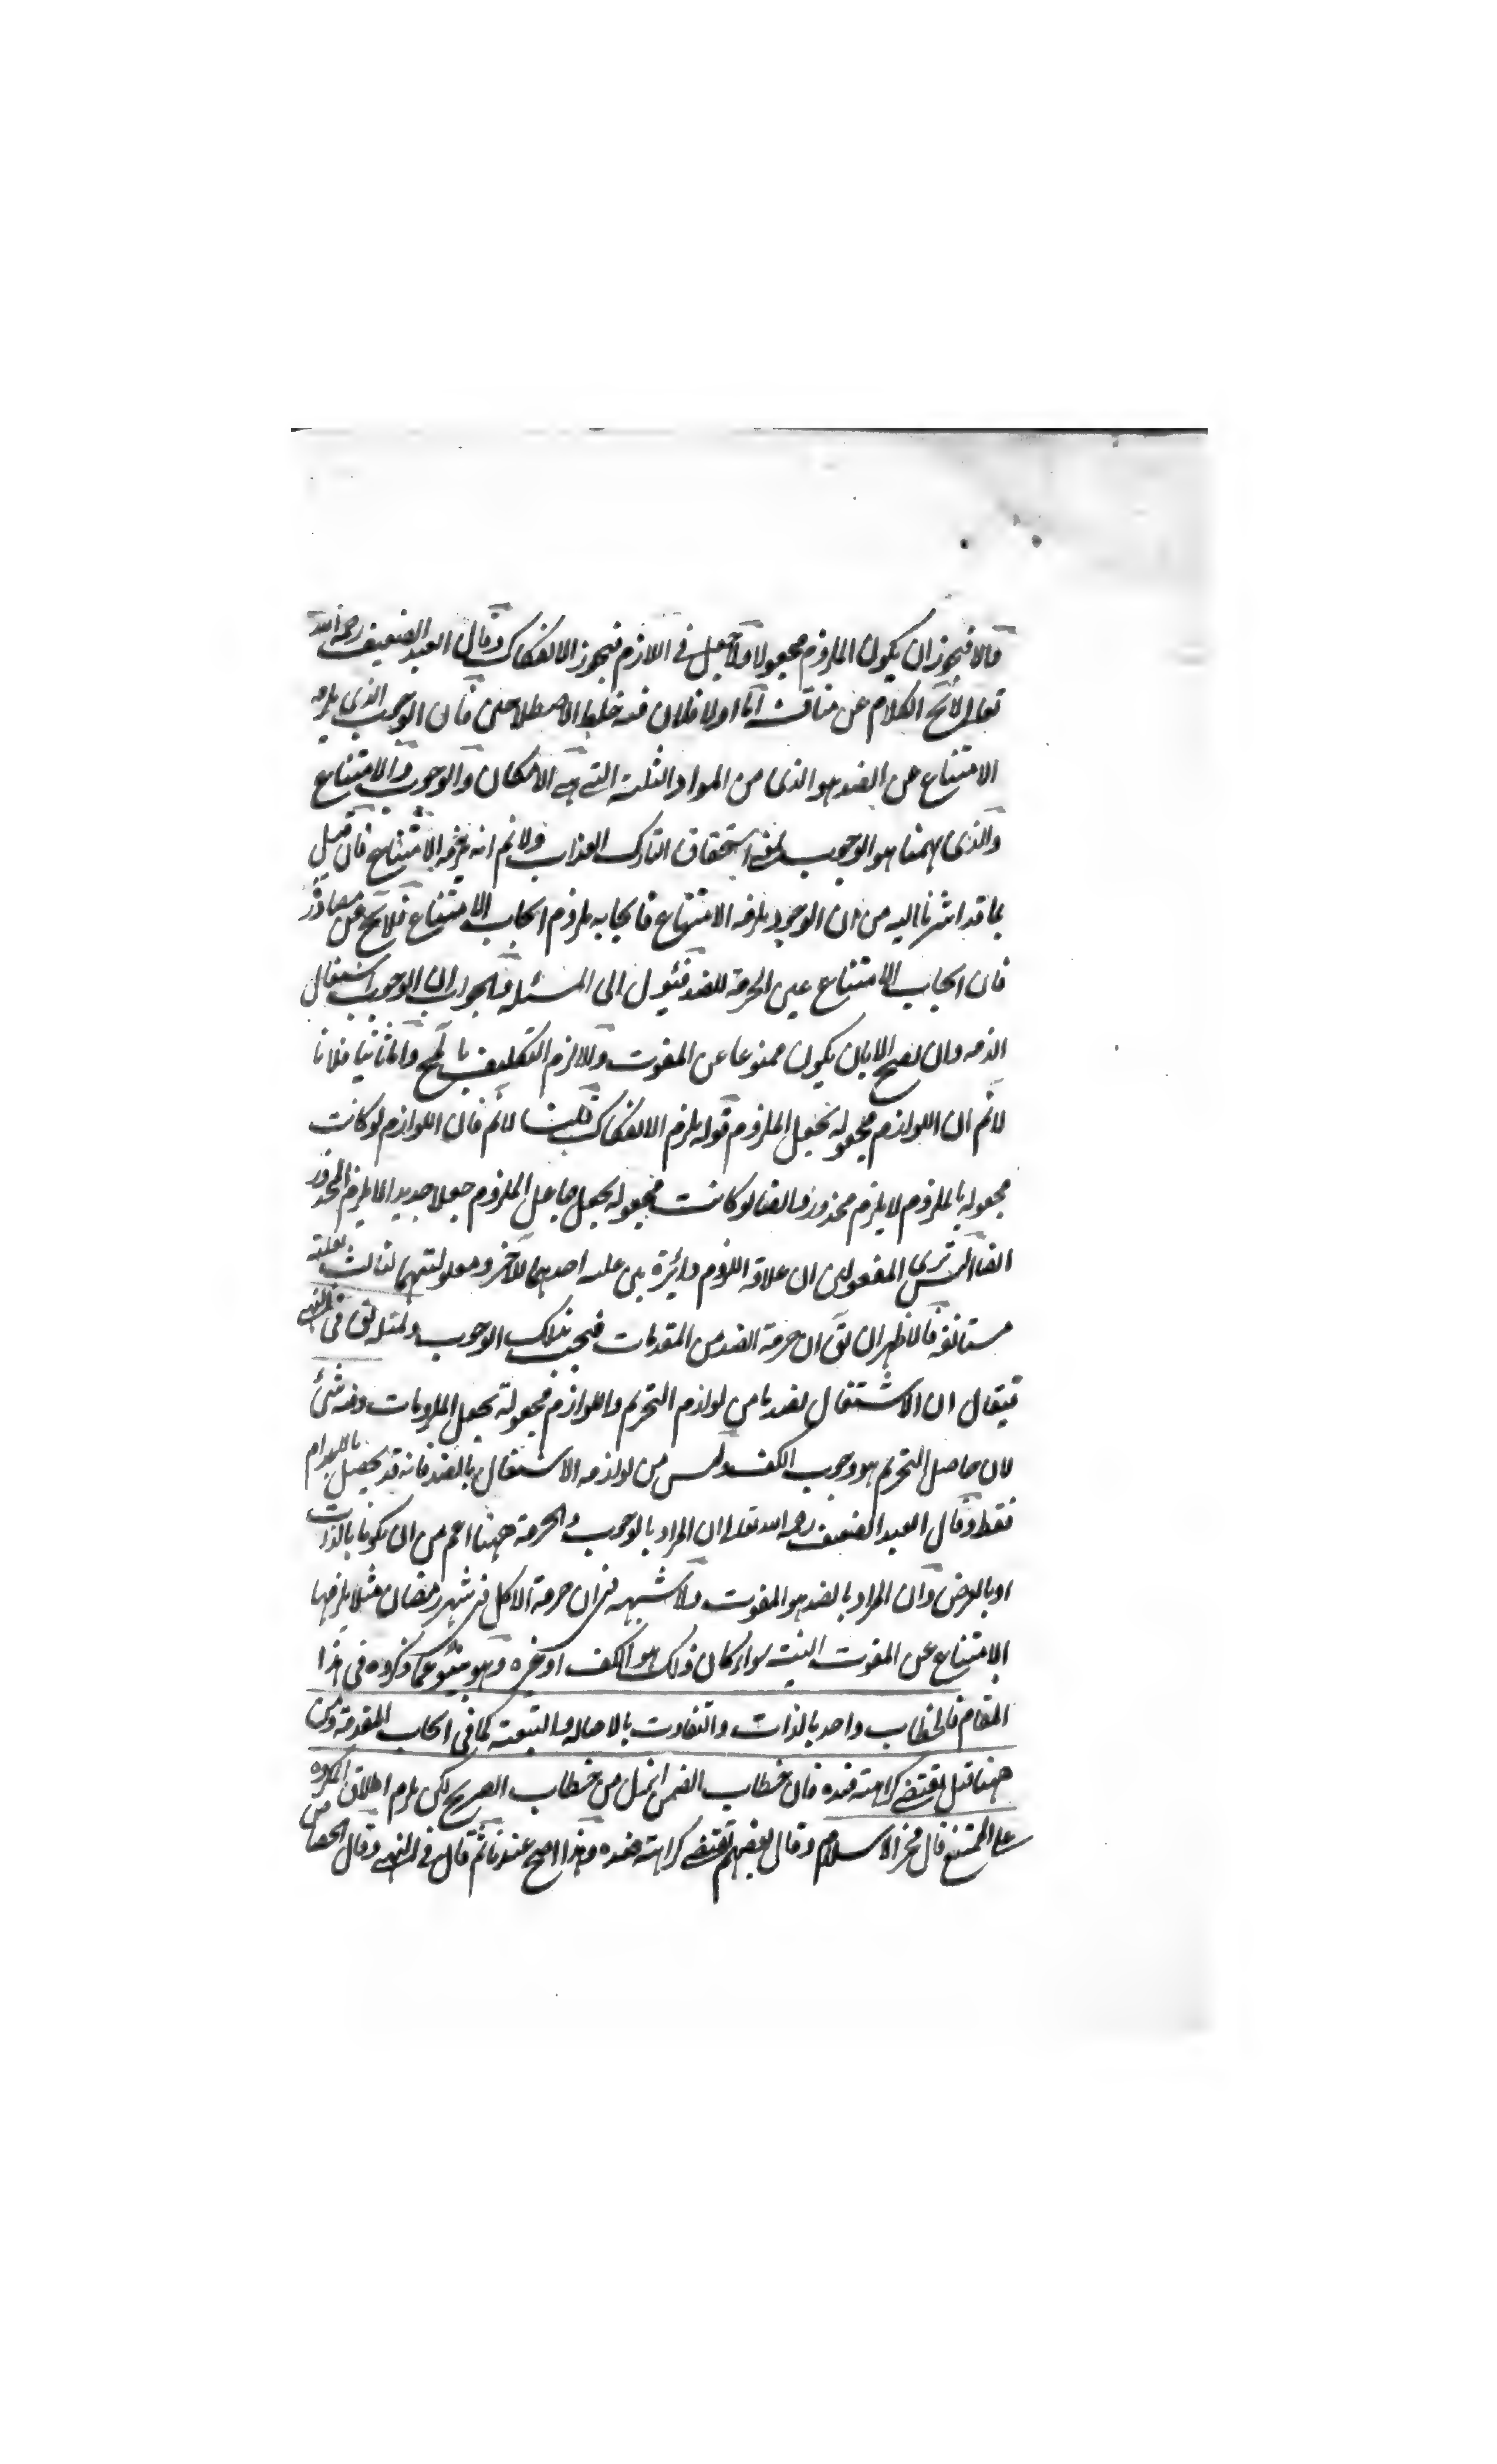 والا فيجوز ان يكون الملزوم مجعولا ولا جعل في اللازم فيجوز الانفكاك وقال العبد الضعيف رحمه الله
تعالى لا يخ الكلام عن مناقشه اما اولا فلان فيه خلط الاصطلاحين فان الوجوب الذى يلزمه
الامتناع عن الضد هو الذى من المواد الثلثة التے هے الامكان والوجوب والامتناع
والذى ههنا هو الوجوب بمعنى استحقاق التارك العذاب ولا نم انه يلزمه الامتناع فان قيل
بما قد اشرنا اليه من ان الوجود يلزمه الامتناع فايجابه ملزوم ايجاب الامتناع فلا يخ عن مصادرة
فان ايجاب الامتناع عين الحرمة للضد فيئول الى المسئلة والجواب ان الوجوب اشتغال
الذمه وان لم يصح الا بان يكون ممنوعا عن المفوت والا لزم التكليف بالمح واما ثانيا فلانا
لا نم ان اللوازم مجعوله بجعل الملزوم قوله يلزم الانفكاك قلنا لا نم فان اللوازم لو كانت
مجعوله بالملزوم لا يلزم محذور وايضا لو كانت مجعوله بجعل جاعل الملزوم جعلا جديدا لا يلزم المحذور
ايضا اليس ترى المعقولين ان علاقة اللزوم دائرة بين علية احدهما للاخر ومعلوليتهما لثالث
مستانفه فالاظهر ان يق ان حرمة الضد من المقدمات فيجب بذلك الوجوب ولمثله يق فى النهى
فيقال ان الاشتغال بضد ما من لوازم التحريم واللوازم مجعولة بجعل الملزومات وفيه شئ
لان حاصل التحريم هو وجوب الكف وليس من لوازمه الاشتغال بالضد فانه قد يحصل بالعدم
فقط وقال العبد الضعيف رحمه الله تعالى ان المراد بالوجوب والحرمة ههنا اعم من ان يكونا بالذات
او بالعرض وان المراد بالضد هو المفوت ولا شبهه فى ان حرمة الاكل فى شهر رمضان مثلا يلزمها
الامتناع عن المفوت البتة سواء كان ذلك هو الكف او غيره وهو مما ذكروه فى هذا
المقام فالخطاب واحد بالذات والتفاوت بالاصالة والتبعية كما فى ايجاب المقدمة ومن
ههنا قيل يقتضے كراهته ضده فان خطاب الضمن انزل من خطاب الصريح لكن يلزم اطلاق المكروه
على الممتنع قال فخر الاسلام وقال بعضهم يقتضے كراهته ضده وهذا اصح عندنا ثم قال فى النهى وقال الجصاص